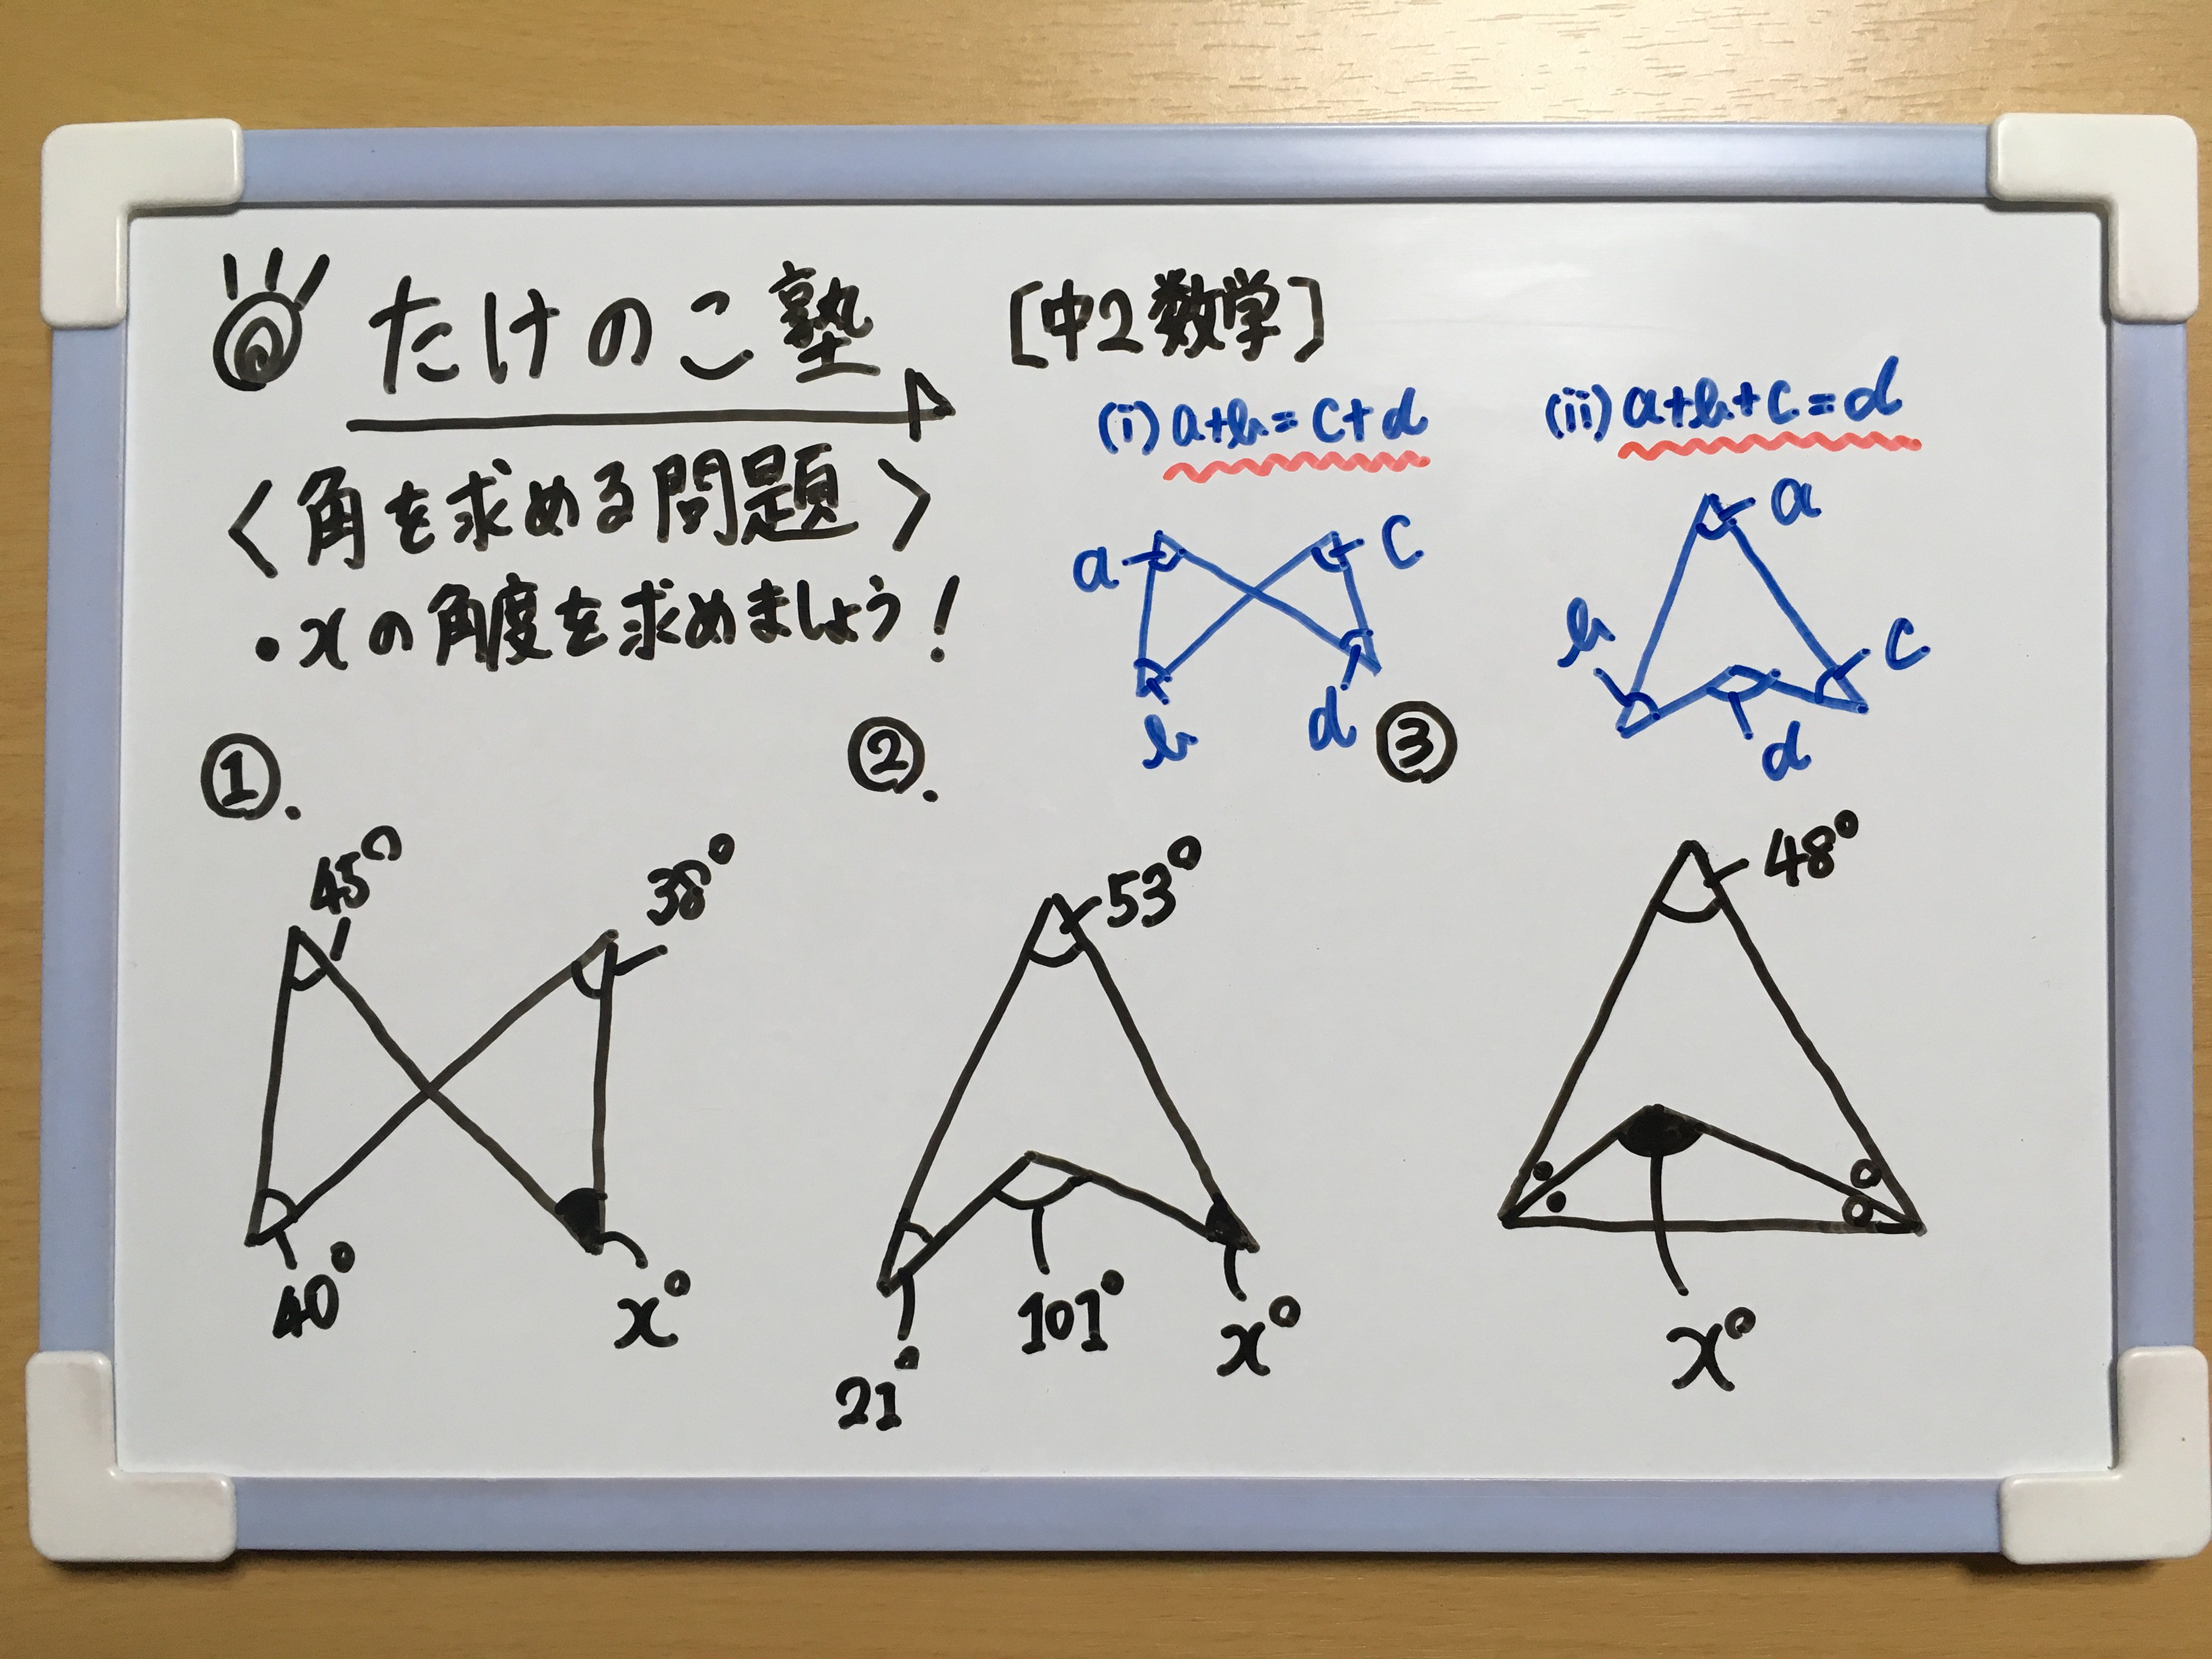 たけのこ塾 [中2数学]
<角を求める問題>
・xの角度を求めましょう!
(i) a+b=c+d
a
c
b
d
(ii) a+b+c=d
a
b
c
d
①.
45°
38°
40°
x°
②.
53°
21°
101°
x°
③
48°
x°